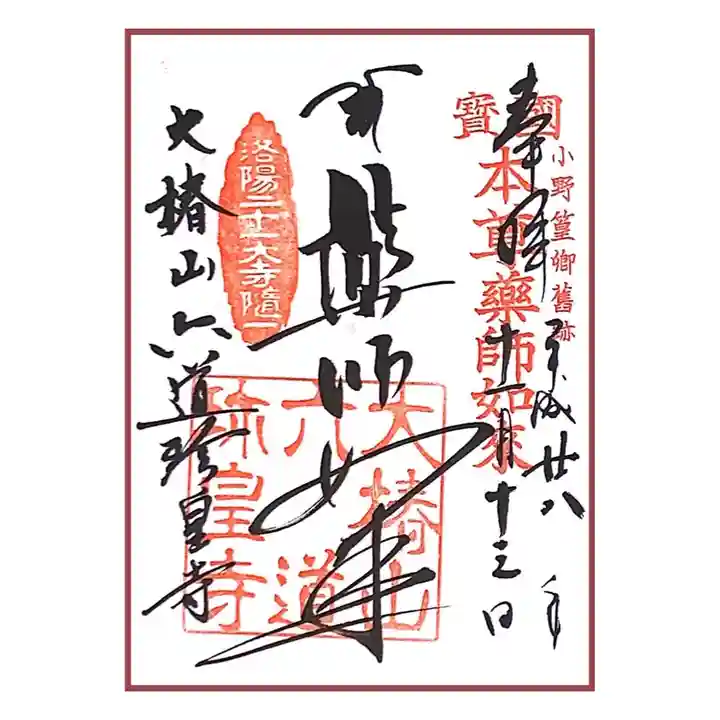 小野篁卿舊跡
平成廿八年
十一月十三日
奉拝
國寶
本尊藥師如来
薬師如来
洛陽二十五大寺随一
大椿山六道珍皇寺
大椿山
六道
珎皇寺